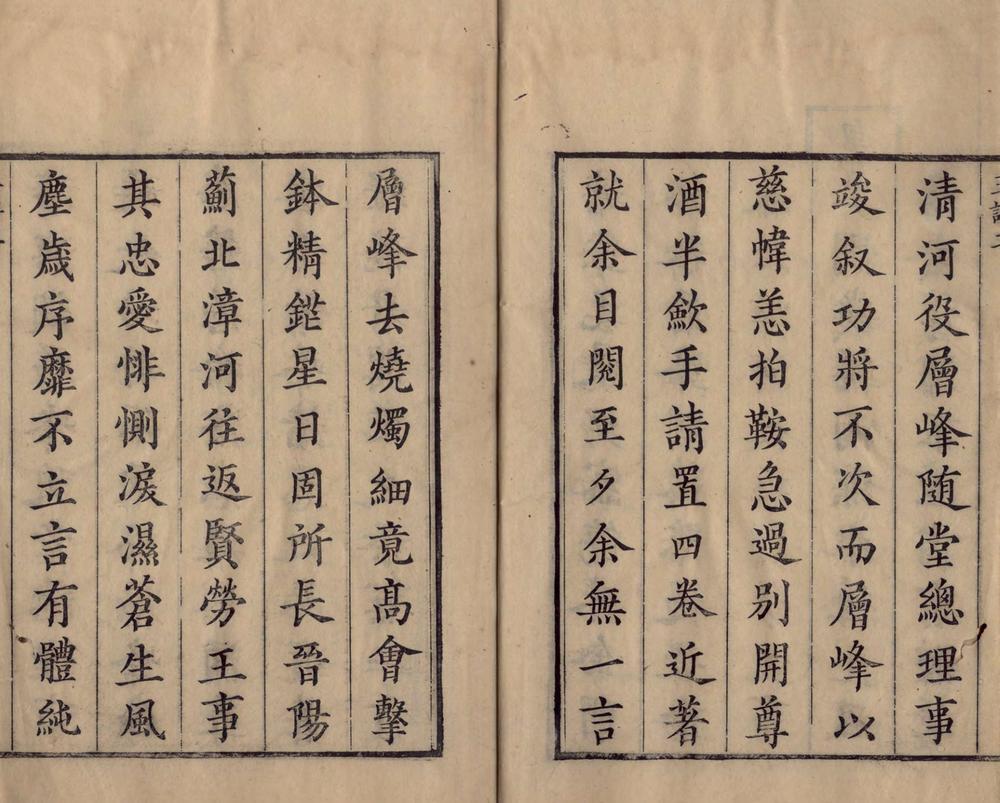 清河役層峰随堂總理事
竣叙功將不次而層峰以
慈幃恙拍鞍急過別開尊
酒半歛手請置四卷近著
就余目閱至夕余無一言
層峰去燒燭細竟髙會擊
鉢精鋩星日固所長晉陽
薊北漳河往返賢勞王事
其忠愛悱惻淚濕蒼生風
塵歲序靡不立言有體純